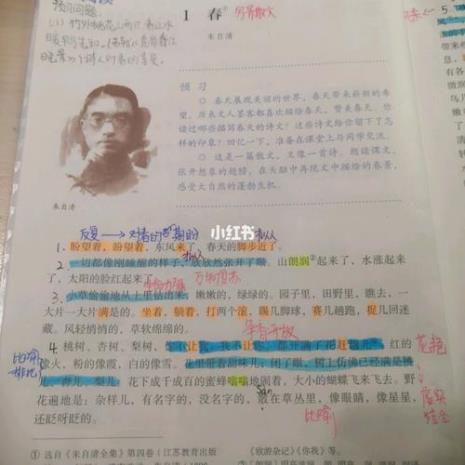 预习问题:
1 春①
写景散文
朱自清
预习
◎ 春天展现美丽的世界,春天带来崭新的希望。历来文人墨客都喜欢描绘春天,赞美春天。你读过哪些描写春天的诗文?这些诗文给你留下了怎样的印象?回忆一下,准备在课堂上与同学交流。
◎ 这是一篇散文,又像一首诗。朗读课文,张开想象的翅膀,在头脑中再现文中描绘的春景,感受大自然的蓬勃生机。
朱自清
小红书
反复
拟人
1、盼望着,盼望着,东风来了,春天的脚步近了。
2、一切都像刚睡醒的样子,欣欣然张开了眼。山朗润②起来了,水涨起来
了,太阳的脸红起来了。
3、小草偷偷地从土里钻出来,嫩嫩的,绿绿的。园子里,田野里,瞧去,一
大片一大片满是的。坐着,躺着,打两个滚,踢几脚球,赛几趟跑,捉几回迷
藏。风轻悄悄的,草软绵绵的。
4 桃树、杏树、梨树,你不让我,我不让你,都开满了花赶趟儿。红的
像火,粉的像霞,白的像雪。花里带着甜味儿;闭了眼,树上仿佛已经满是桃
儿、杏儿、梨儿。花下成千成百的蜜蜂嗡嗡地闹着,大小的蝴蝶飞来飞去。野
花遍地是:杂样儿,有名字的,没名字的,散在草丛里,像眼睛,像星星,
还眨呀眨的。
比喻
排比
花艳
虚实
结合
比喻
① 选自《朱自清全集》第四卷(江苏教育出版
《欧游杂记》《你我》等。